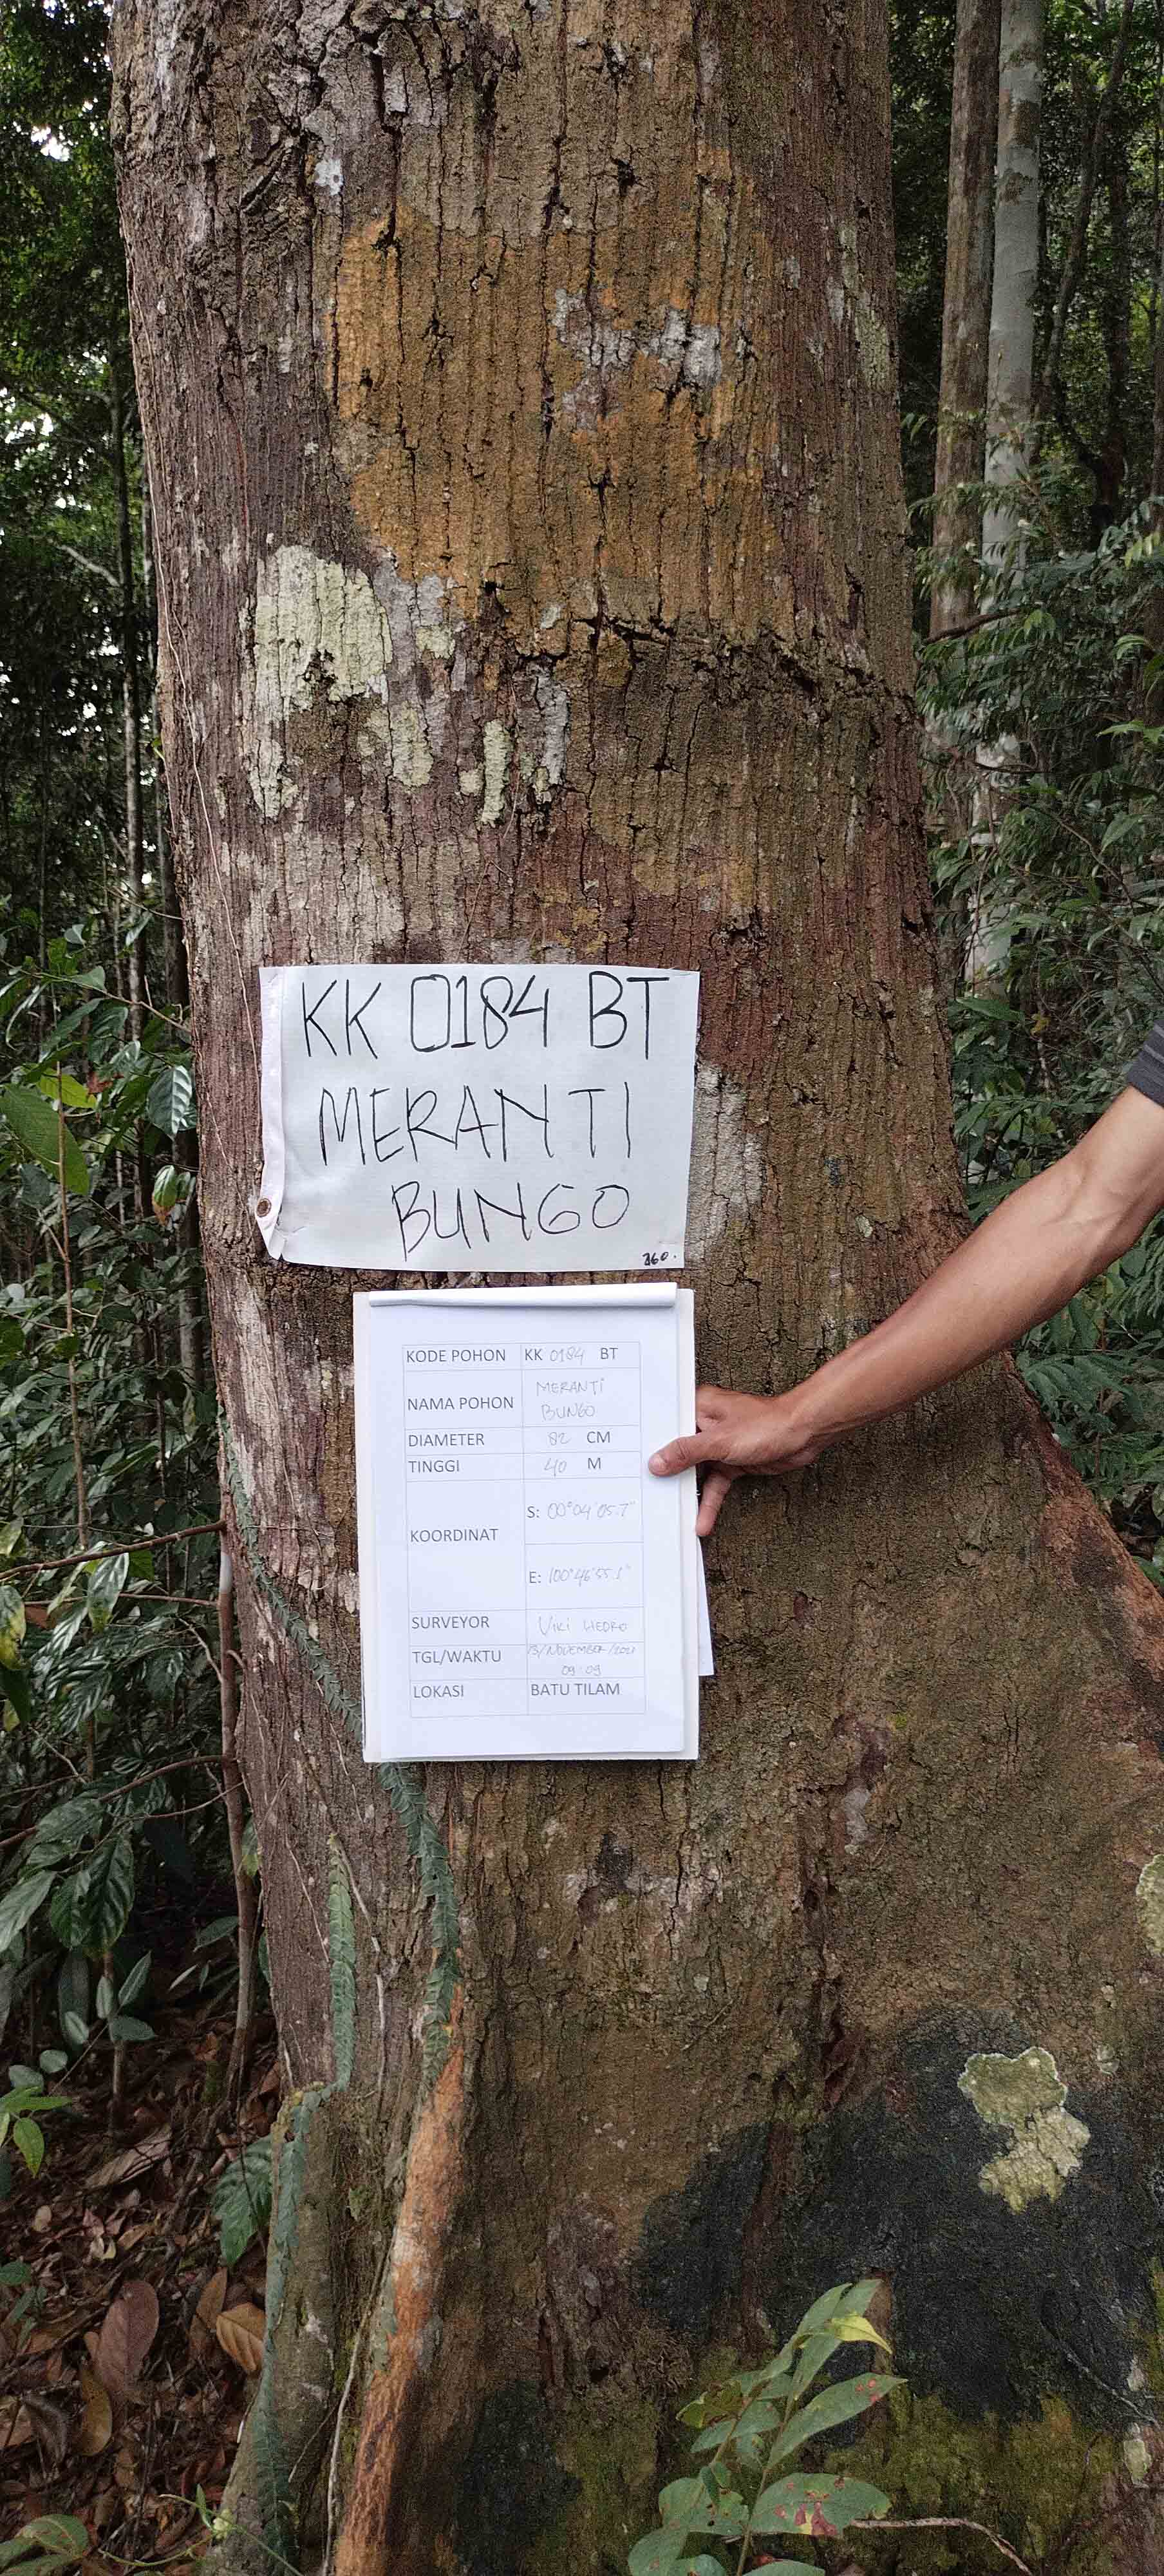 KK 0184 BT
MERANTI
BUNGO
360.
KODE POHON KK 0184 BT
NAMA POHON MERANTI
BUNGO
DIAMETER 82 CM
TINGGI 40 M
KOORDINAT S: 00°04'05.7"
E: 100°46'55.1"
SURVEYOR VIKI HEDRO
TGL/WAKTU 13/NOVEMBER/2021
09:09
LOKASI BATU TILAM